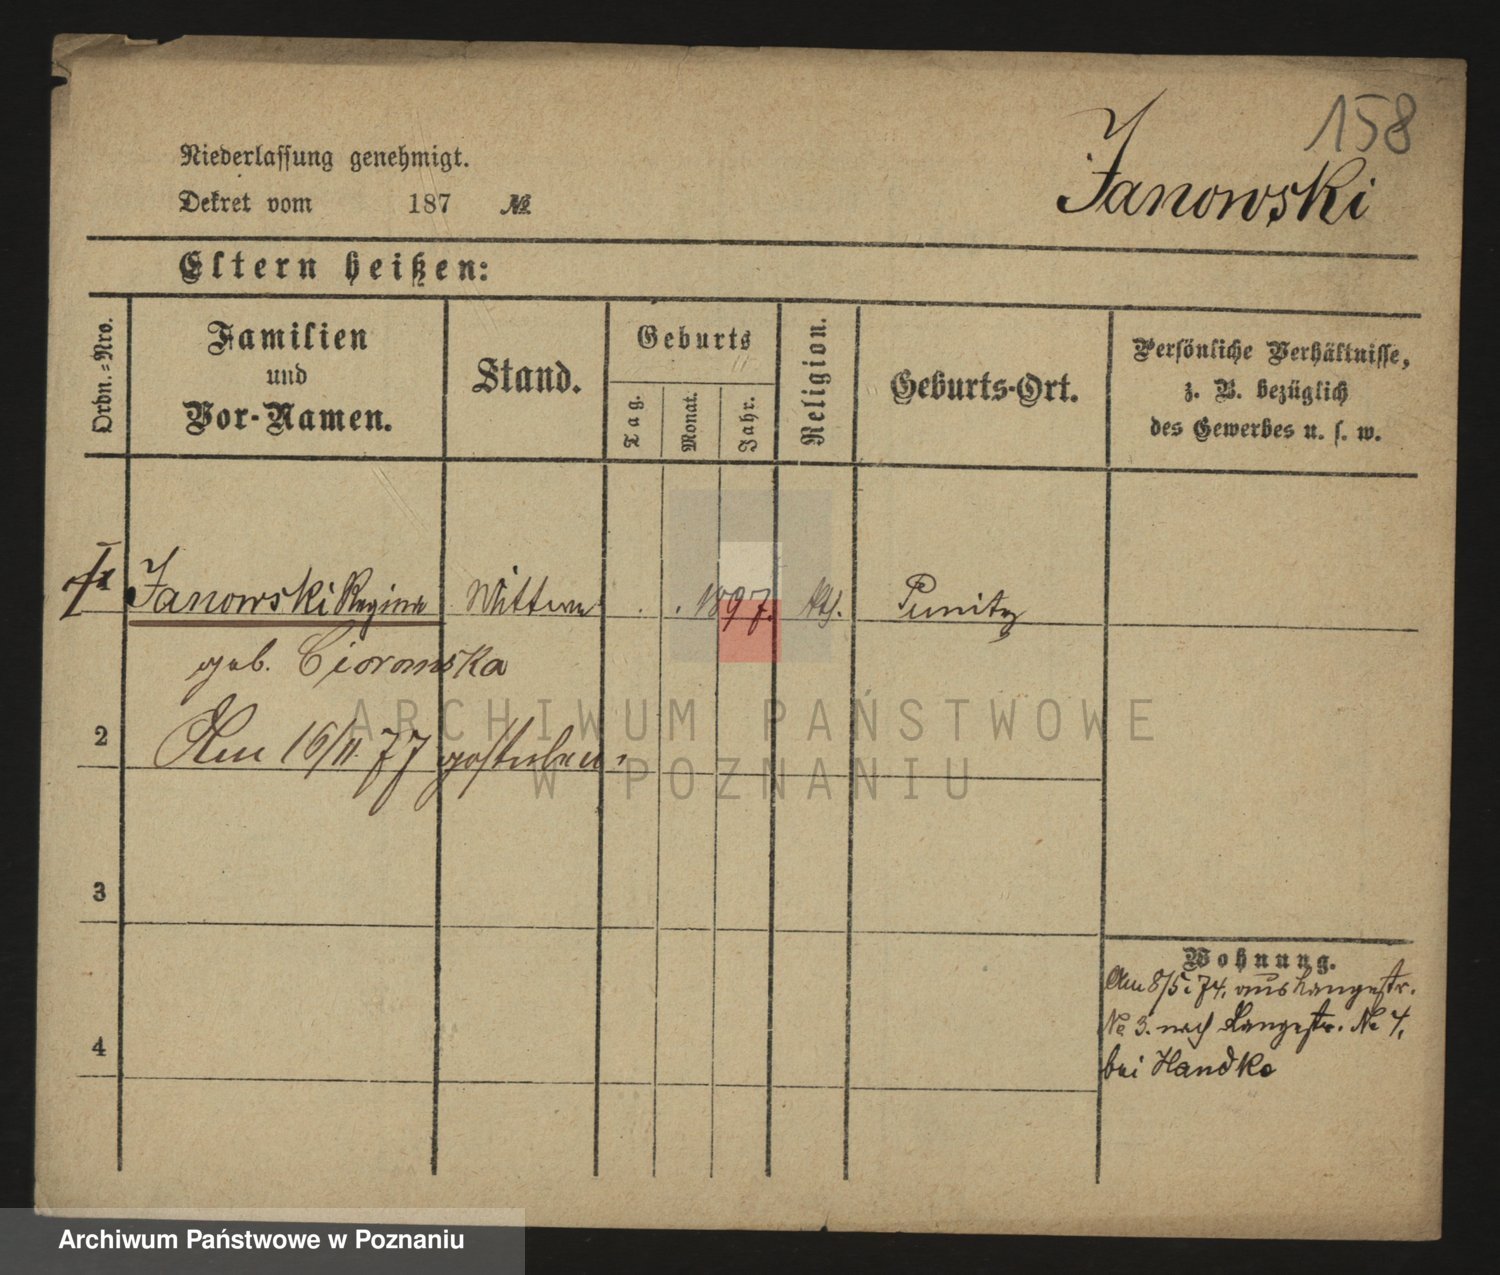 158
Janowski
Niederlassung genehmigt.
Dekret vom 187 №
Eltern heißen:
Ordn.-Nro.
Familien
und
Vor-Namen.
Stand.
Geburts
Tag.
Monat.
Jahr.
Religion.
Geburts-Ort.
Persönliche Verhältnisse,
z. B. bezüglich
des Gewerbes u. s. w.
1 Janowski Regina Wittwe 1897. kth. Punitz
geb.
2 Am 16/11 77 gestorben.
3
4
Wohnung.
Am 8/5. 74. aus Langestr.
№ 3. nach Langestr. № 4,
bei Handke
ARCHIWUM PAŃSTWOWE
W POZNANIU
Archiwum Państwowe w Poznaniu